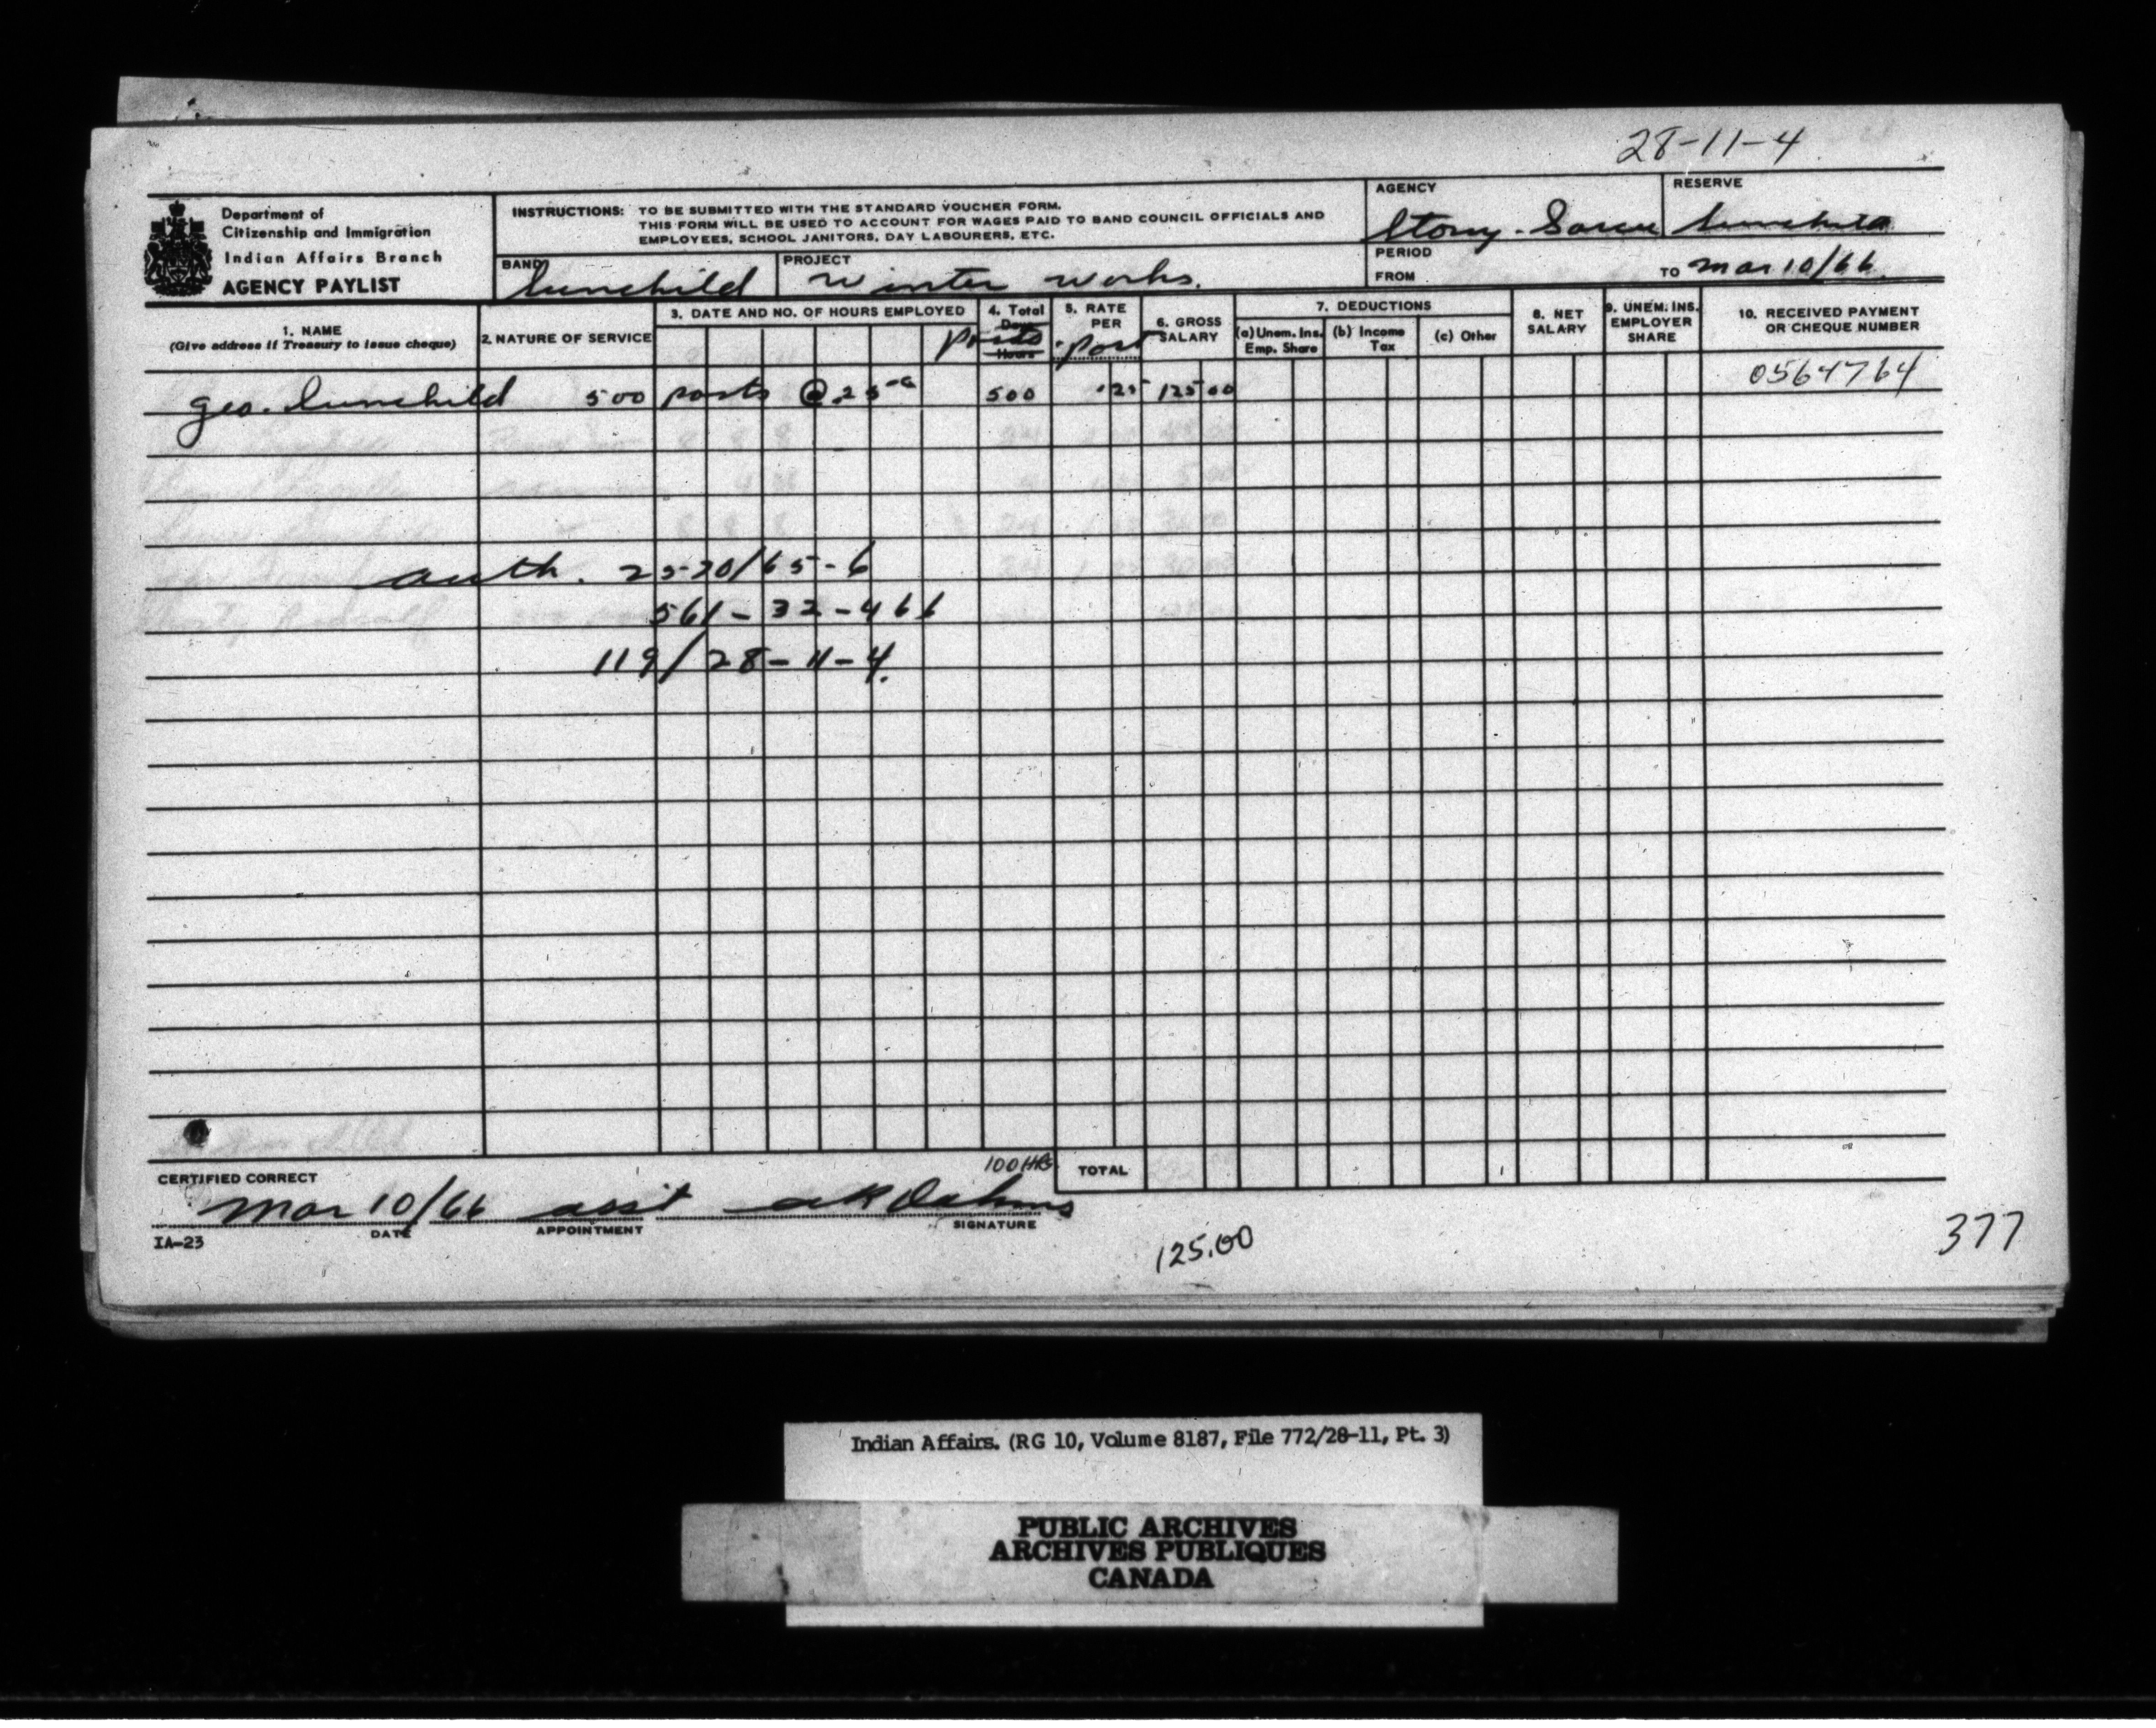 28-11-4
Department of
Citizenship and Immigration
Indian Affairs Branch
AGENCY PAYLIST
INSTRUCTIONS: TO BE SUBMITTED WITH THE STANDARD VOUCHER FORM.
THIS FORM WILL BE USED TO ACCOUNT FOR WAGES PAID TO BAND COUNCIL OFFICIALS AND
EMPLOYEES, SCHOOL JANITORS, DAY LABOURERS, ETC.
BAND Sunchild
PROJECT Winter Works.
AGENCY Stony-Sarcee
RESERVE Sunchild
PERIOD
FROM TO Mar 10/66
1. NAME
(Give address if Treasury to issue cheque)
2. NATURE OF SERVICE
3. DATE AND NO. OF HOURS EMPLOYED
4. Total
Days
Posts
Hours
5. RATE
PER
Post
6. GROSS
SALARY
7. DEDUCTIONS
(a) Unem. Ins.
Emp. Share
(b) Income
Tax
(c) Other
8. NET
SALARY
9. UNEM. INS.
EMPLOYER
SHARE
10. RECEIVED PAYMENT
OR CHEQUE NUMBER
Geo. Sunchild 500 posts @ .25 ea 500 .25 125 00 0564764
auth. 25-20/65-6
561-32-466
119/28-11-4.
100 HRS
TOTAL
CERTIFIED CORRECT
Mar 10/66 asst
DATE APPOINTMENT SIGNATURE
IA-23
125.00
377
Indian Affairs. (RG 10, Volume 8187, File 772/28-11, Pt. 3)
PUBLIC ARCHIVES
ARCHIVES PUBLIQUES
CANADA